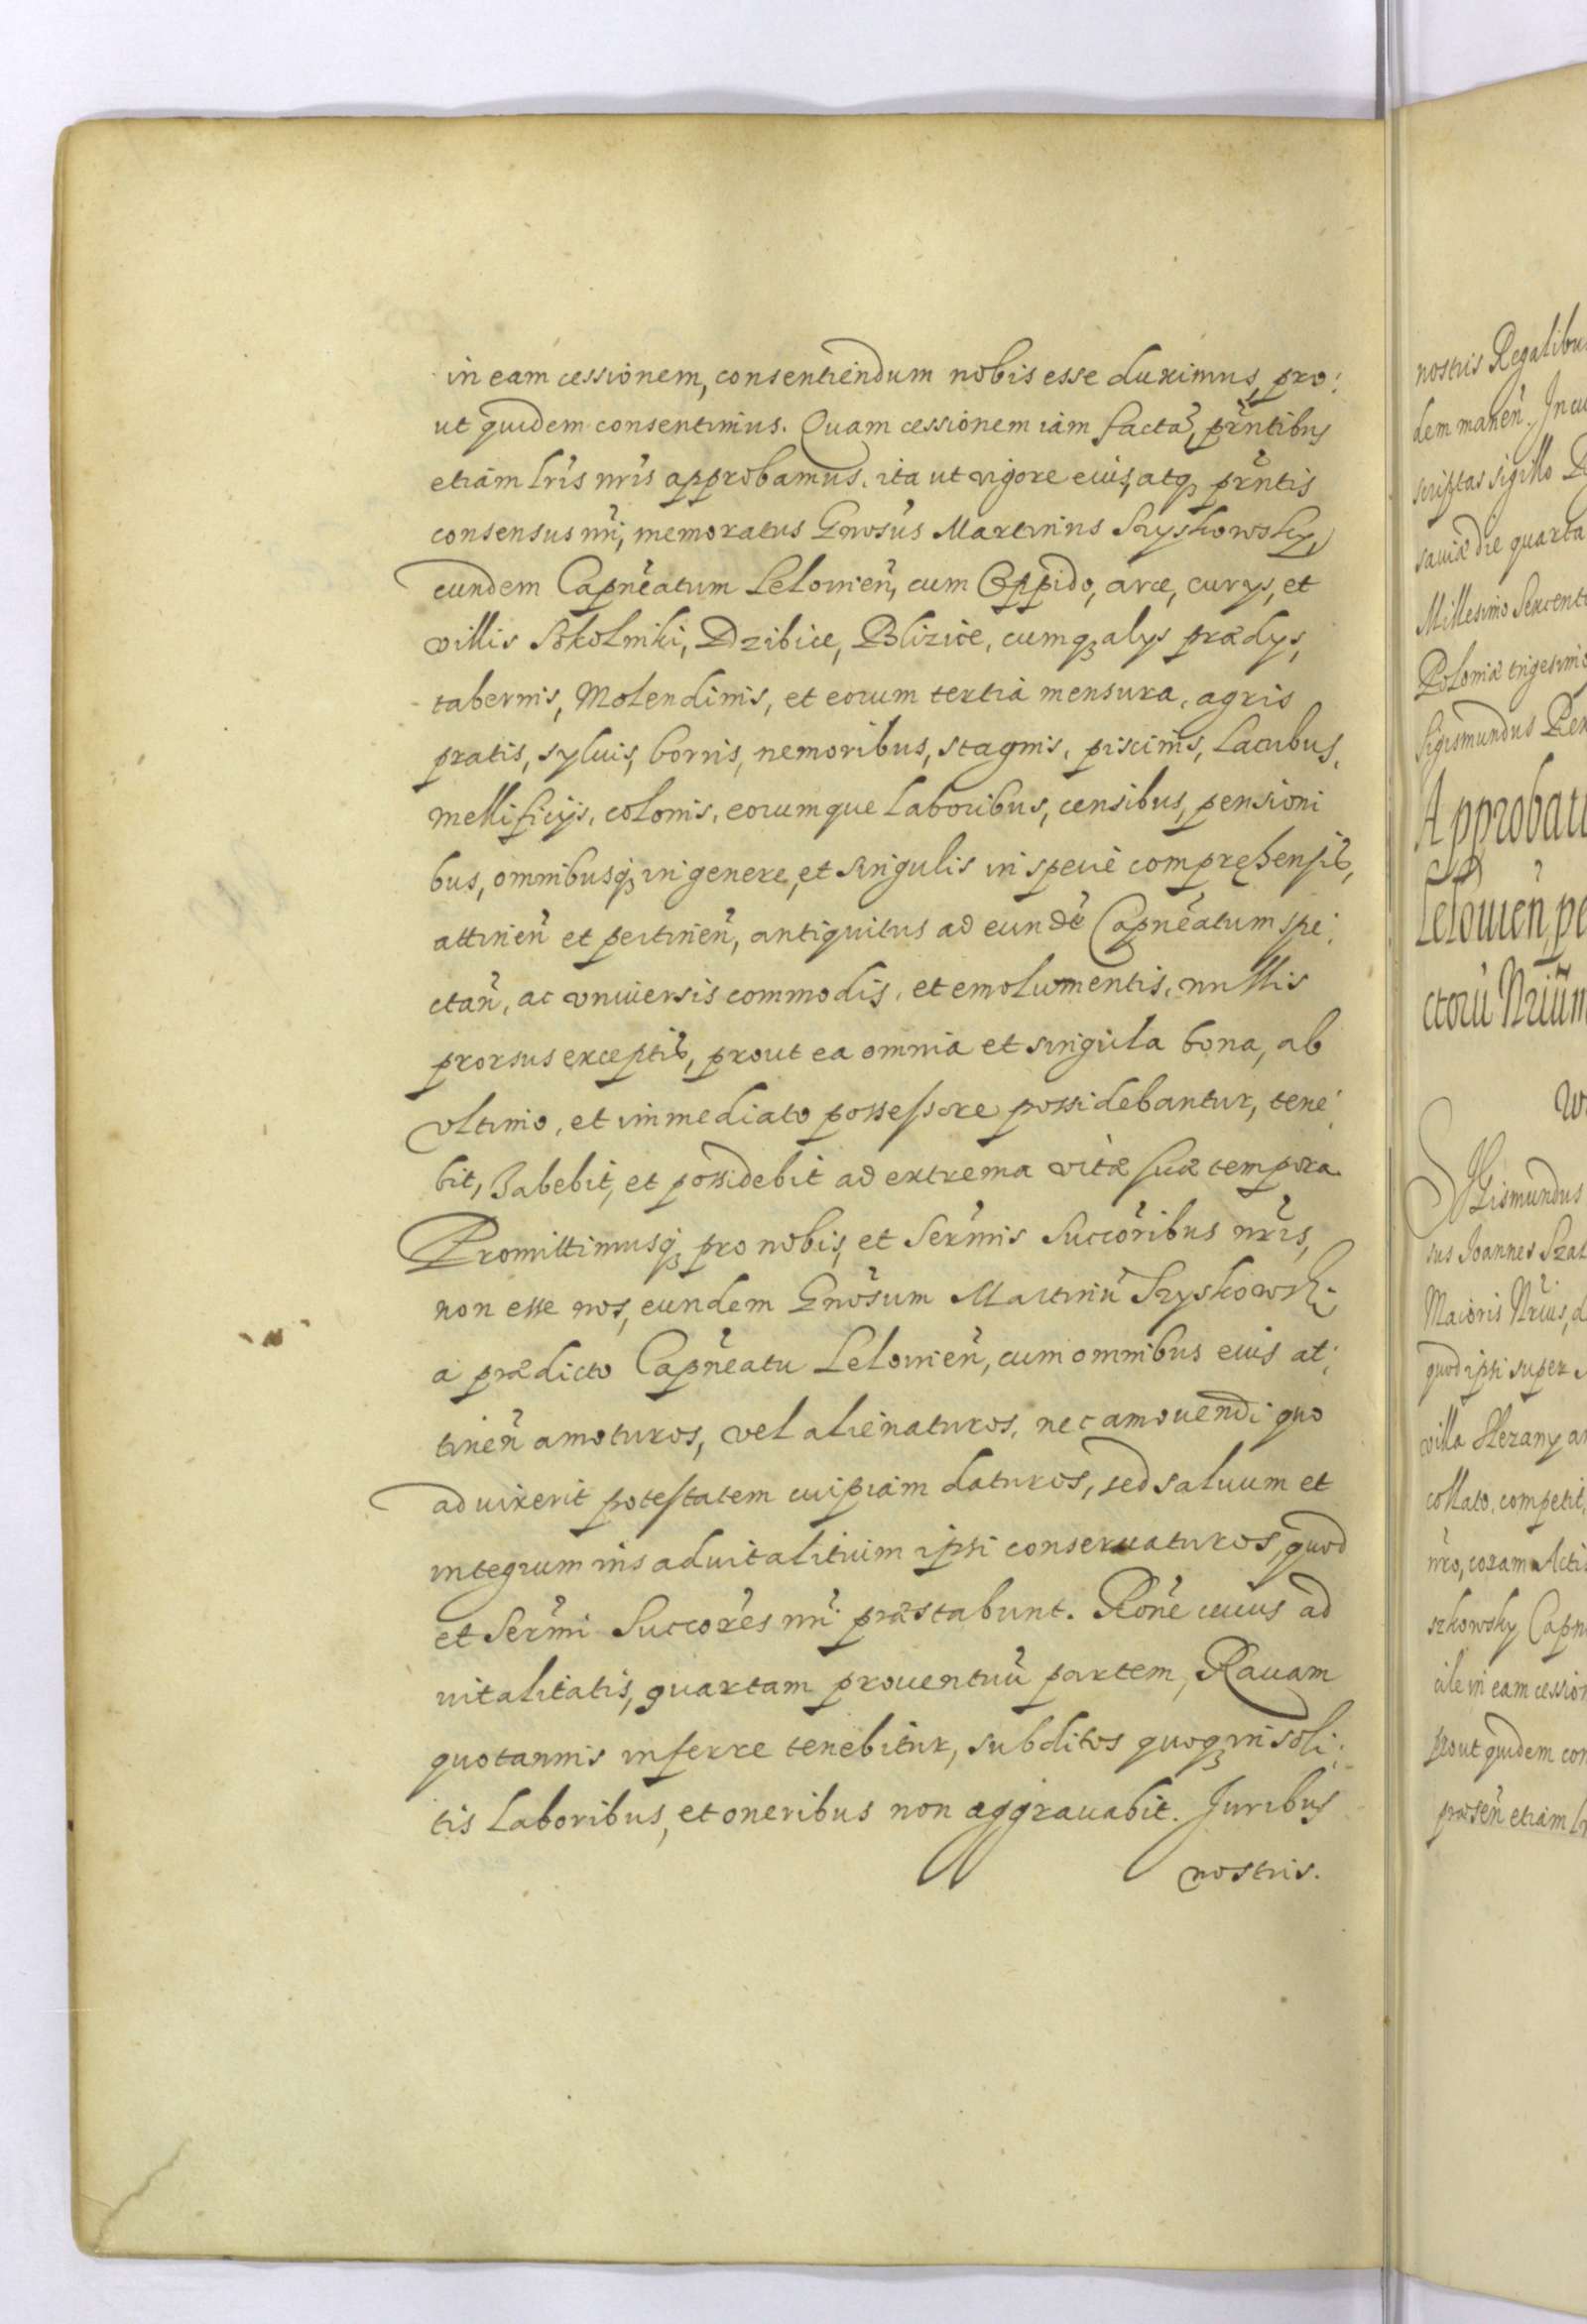 in eam cessionem, consentiendum nobis esse duximus, pro:
ut quidem consentimus. Quam cessionem iam factã, prñtibus
etiam lris nris approbamus, ita ut vigore eius, atq prñtis
consensus nri, memoratus Gnosus Martinus Szyskowsky,
eundem Capneatum Lelovien, cum Oppido, arce, curys, et
villis Sokolniki, Dzibice, Blizice, cumq alys prædys,
tabernis, Molendinis, et eorum tertia mensura, agris
pratis, syluis, borris, nemoribus, stagnis, piscinis, Lacubus,
mellificijs, colonis, eorumque Laboribus, censibus, pensioni
bus, omnibusq in genere, et singulis in specie compręhensis,
attineñ et pertineñ, antiquitus ad eundẽ Capneatum spe:
ctañ, ac vniuersis commodis, et emolumentis, nullis
prorsus exceptis, prout ea omnia et singula bona, ab
vltimo, et immediato possessore possidebantur, tene:
bit, habebit, et possidebit ad extrema vitæ suæ tempora.
Promittimusq pro nobis, et Sermis Succoribus nris,
non esse nos, eundem Gnosum Martinũ Szyskowski
a prædicto Capneatu Lelovieñ, cum omnibus eius at:
tineñ amoturos, vel alienaturos, nec amouendi quo
aduixerit potestatem cuipiam daturos, sed saluum et
integrum ius aduitalitium ipsi conseruaturos, quod
et Sermi Succores nri præstabunt. Rone cuius ad
uitalitatis, quartam prouentuũ partem, Rauam
quotannis inferre tenebitur, subditos quoq insoli:
tis Laboribus, et oneribus non aggrauabit. Juribus
nostris.
nostris Regalibu
dem maneñ. In cu
scriptas sigillo
sauiæ die quarta
Millesimo Sexcent
Poloniæ trigesimo
Sigismundus
Approbati
Louieñ pe
ctorũ
Sigismundus
sus Joannes
Maioris
quod ipsi super
villa
collato, competit,
nro, coram Acti
szkowsky Capn
cile in eam cession
prout quidem con
præseñ etiam